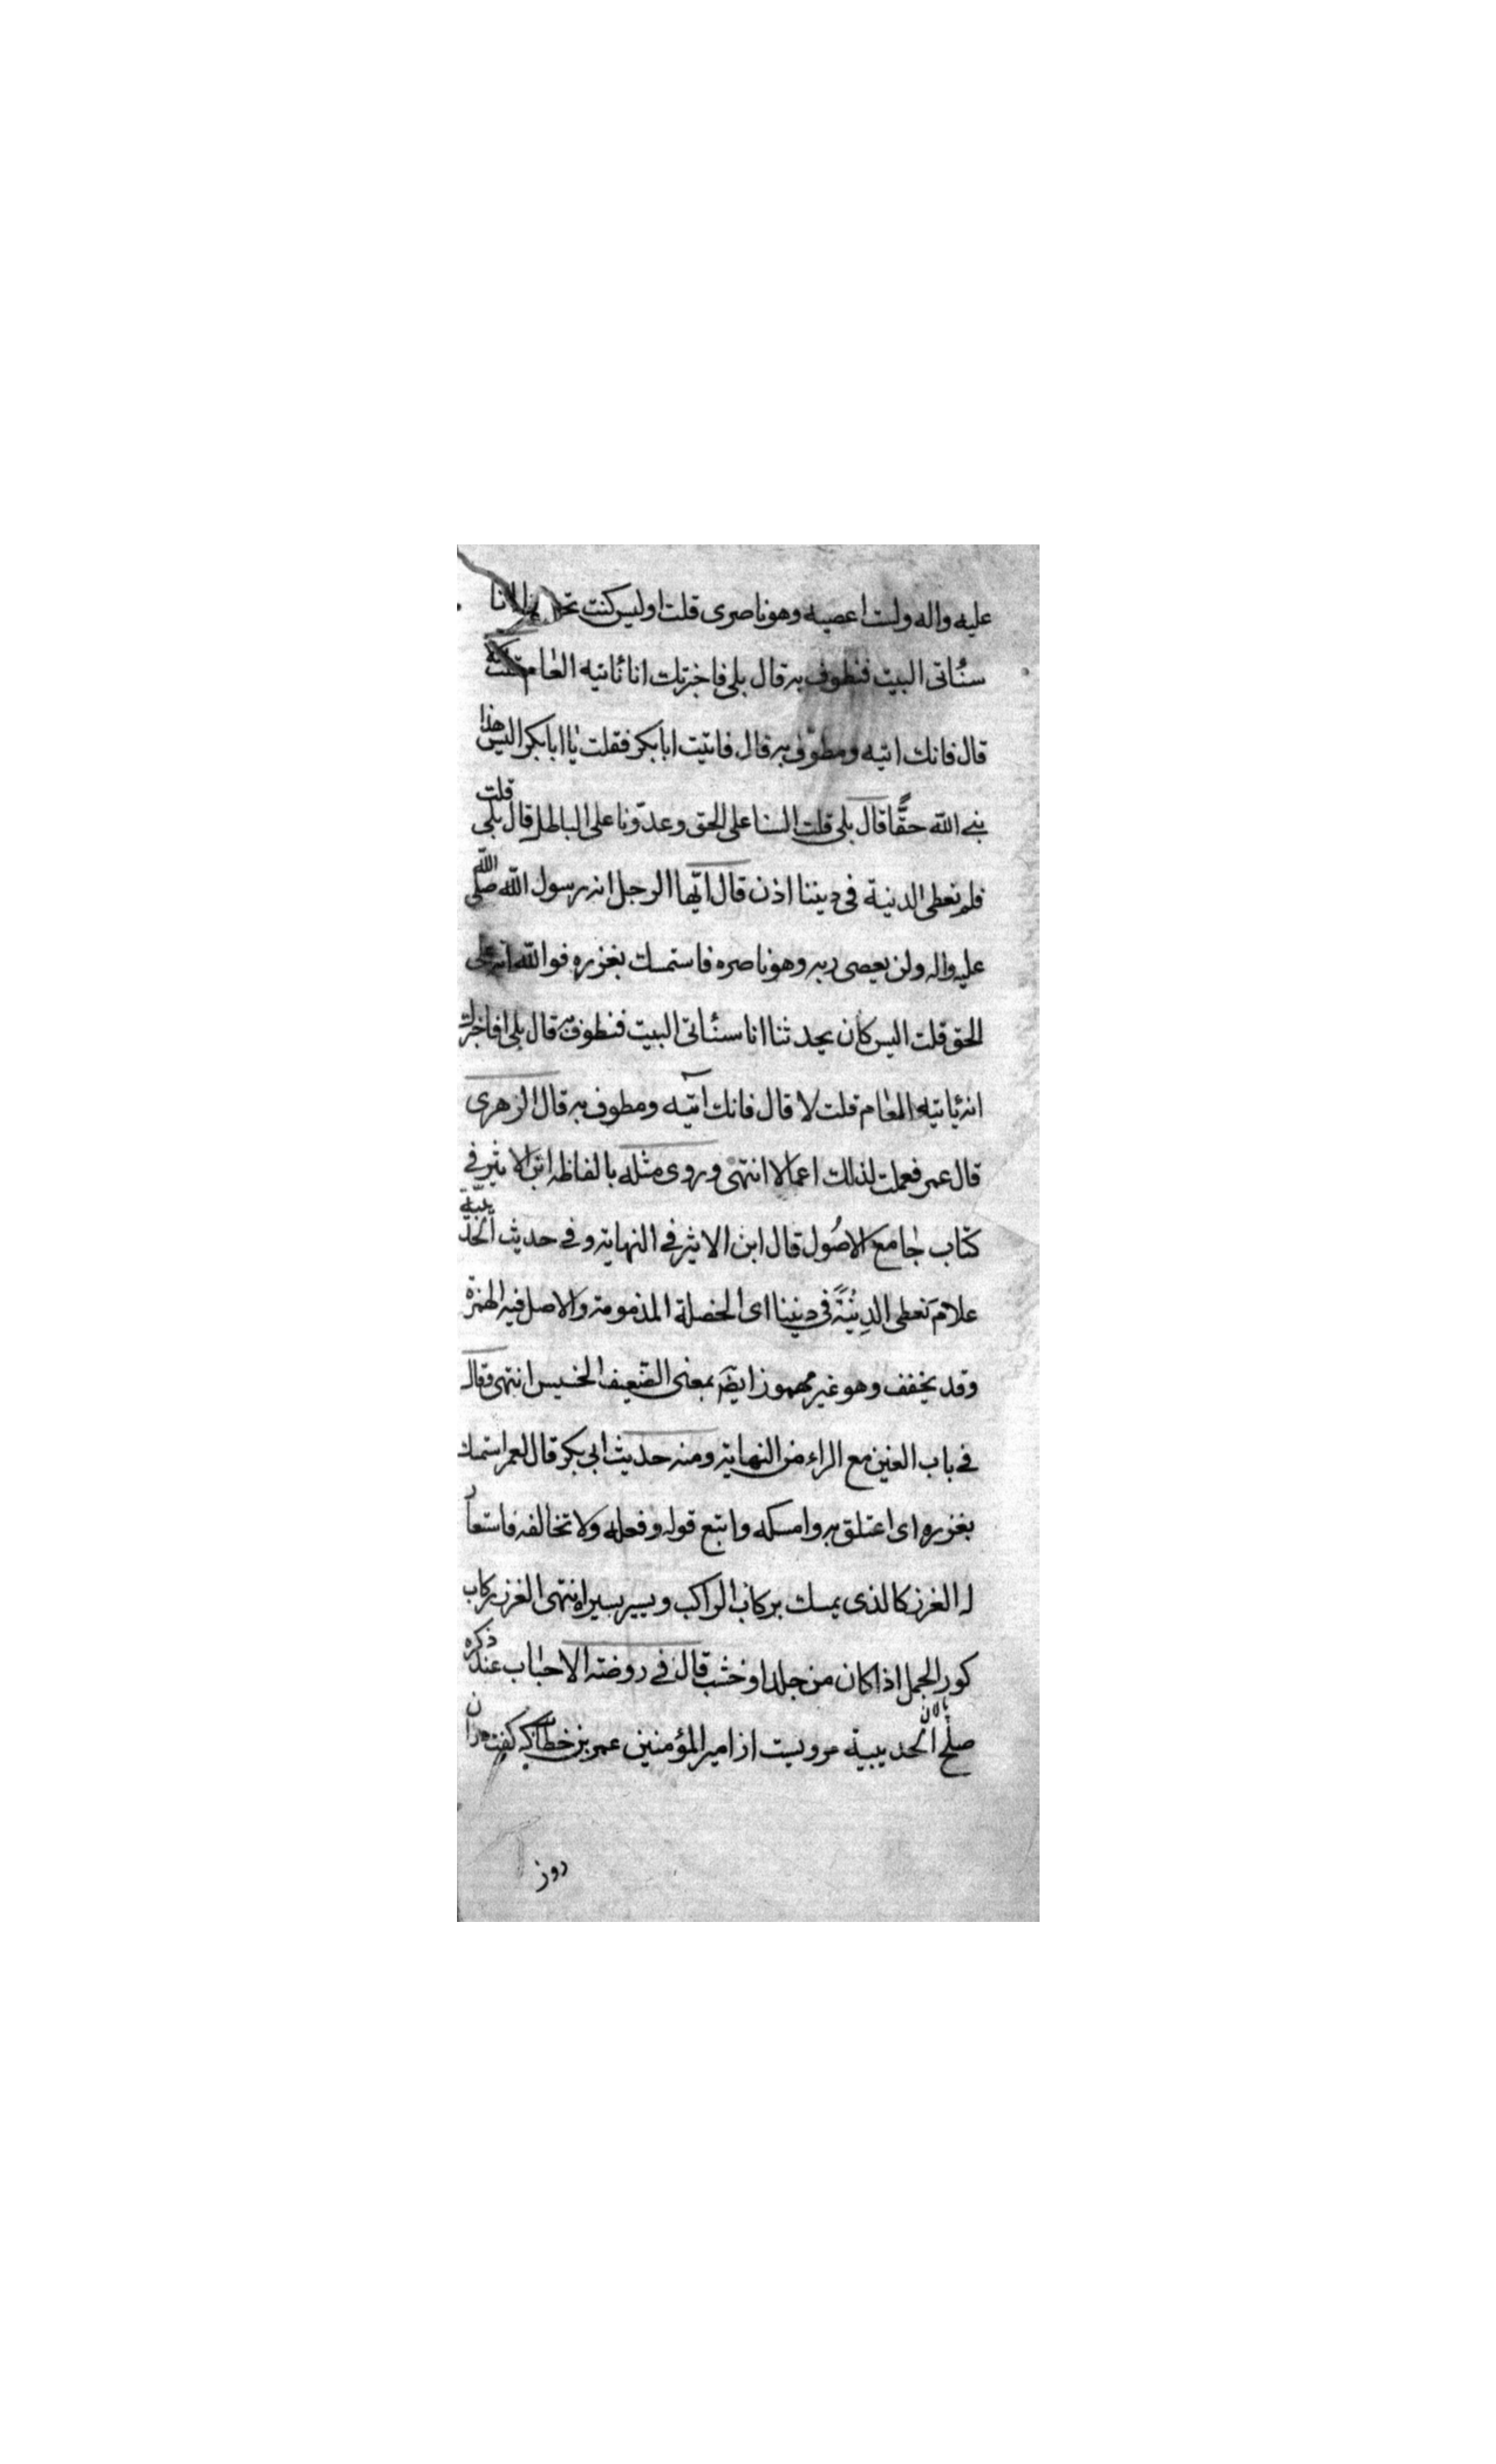 عليه واله ولست اعصيه وهو ناصرى قلت اوليس كنت انا
سنأتى البيت فنطوف به قال بلى فاخبرتك انا ناتيه العام قلت لا
قال فانك اتيه ومطوف به قال فاتيت ابا بكر فقلت يا ابا بكر اليس هذا
نبى الله حقًّا قال بلى قلت السنا على الحق وعدوّنا على الباطل قال بلى قلت
فلم نعطى الدنية فى ديننا اذن قال ايّها الرجل انه رسول الله صلى الله
عليه واله ولن يعصى ربه وهو ناصره فاستمسك بغرزه فوالله انه على
الحق قلت اليس كان يحدثنا انا سنأتى البيت فنطوف به قال بلى افاخبرك
انه ياتيه العام قلت لا قال فانك اتيه ومطوف به قال الزهرى
قال عمر فعملت لذلك اعمالا انتهى وروى مثله بالفاظه ابن الاثير فى
كتاب جامع الاصُول قال ابن الاثير فى النهاية وفى حديث الحديبية
علامَ نعطى الدِنيّة فى ديننا اى الخصلة المذمومة والاصل فيه الهمزة
وقد يخفف وهو غير مهموز ايضا بمعنى الضعيف الخسيس انتهى وقال
فى باب الغين مع الراء من النهاية ومنه حديث ابى بكر قال لعمر استمسك
بغرزه اى اعتلق به وامسكه واتبع قوله وفعله ولا تخالفه فاستعار
له الغرز كالذى يمسك بركاب الراكب ويسير بسيره انتهى الغرز ركاب
كور الجمل اذا كان من جلد او خشب قال فى روضة الاحباب عند ذكره
صلح الحديبية مرويست از امير المؤمنين عمر بن خطاب كه كفت دران
روز